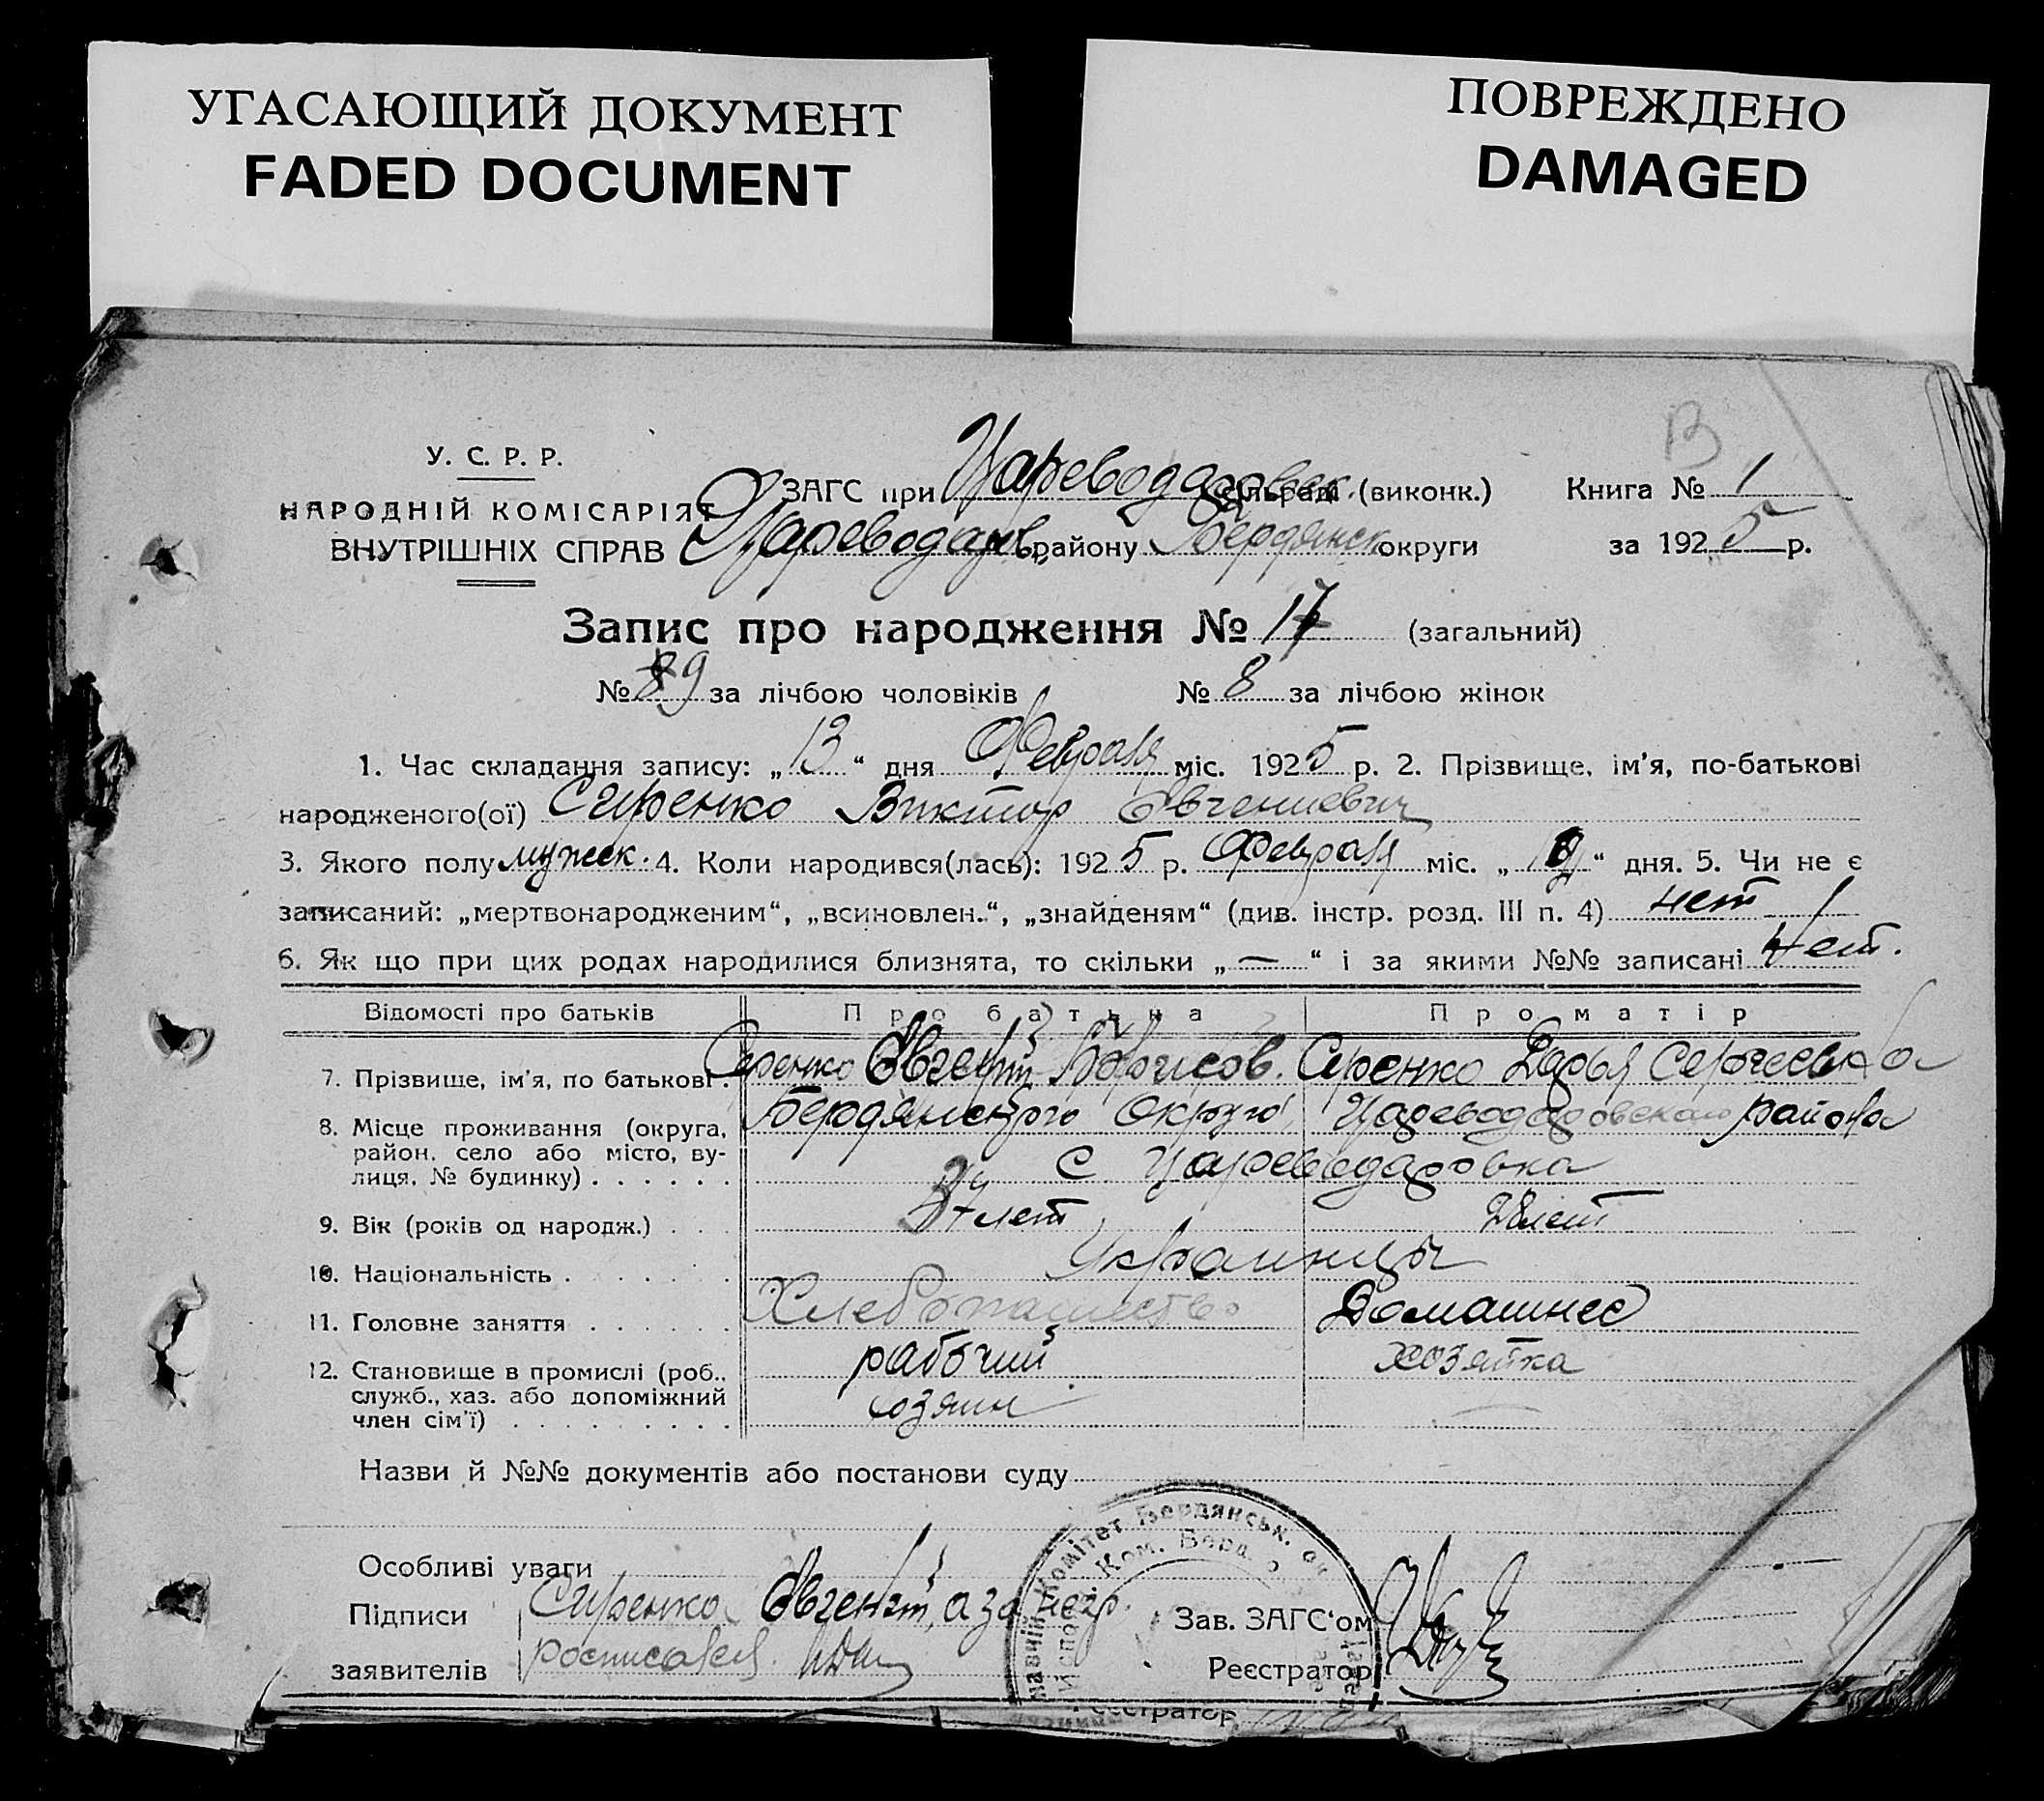 УГАСАЮЩИЙ ДОКУМЕНТ
FADED DOCUMENT
ПОВРЕЖДЕНО
DAMAGED
В
У. С. Р. Р.
НАРОДНІЙ КОМІСАРІЯТ
ВНУТРІШНІХ СПРАВ
ЗАГС при Цареводаровск. сільраді (виконк.)
Цареводаров. району Бердянск округи
Книга № 1
за 1925 р.
Запис про народження № 17 (загальний)
№ 9 за лічбою чоловіків № 8 за лічбою жінок
1. Час складання запису: „13“ дня Февраля міс. 1925 р. 2. Прізвище, ім'я, по-батькові
народженого(ої) Сиренко Виктор Євгениевич
3. Якого полу мужск. 4. Коли народився(лась): 1925 р. Февраля міс. „ “ дня. 5. Чи не є
записаний: „мертвонародженим“, „всиновлен.“, „знайденям“ (див. інстр. розд. III п. 4) нет
6. Як що при цих родах народилися близнята, то скільки „—“ і за якими №№ записані Нет.
Відомості про батьків Про батька Про матір
7. Прізвище, ім'я, по батькові. Сиренко Євгений Борисов. Сиренко Дарья Сергеевна
8. Місце проживання (округа, Бердянского Округа, Цареводаровского района
район, село або місто, ву-
лиця, № будинку) . . . . . . с Цареводаровка
9. Вік (років од народж.) . . . 37 лет 28 лет
10. Національність . . . . . . Украинцы
11. Головне заняття . . . . . . Хлебопашество Домашнее
12. Становище в промислі (роб., рабочий хозяйка
служб., хаз. або допоміжний
член сім'ї) . . . . . . . . . хозяин
Назви й №№ документів або постанови суду
Особливі уваги
Підписи Сиренко Євгений, а за негр.
заявителів росписался
Зав. ЗАГС'ом
Реєстратор
Комітет Бердянськ. ок
Ком. Берд
Реєстратор